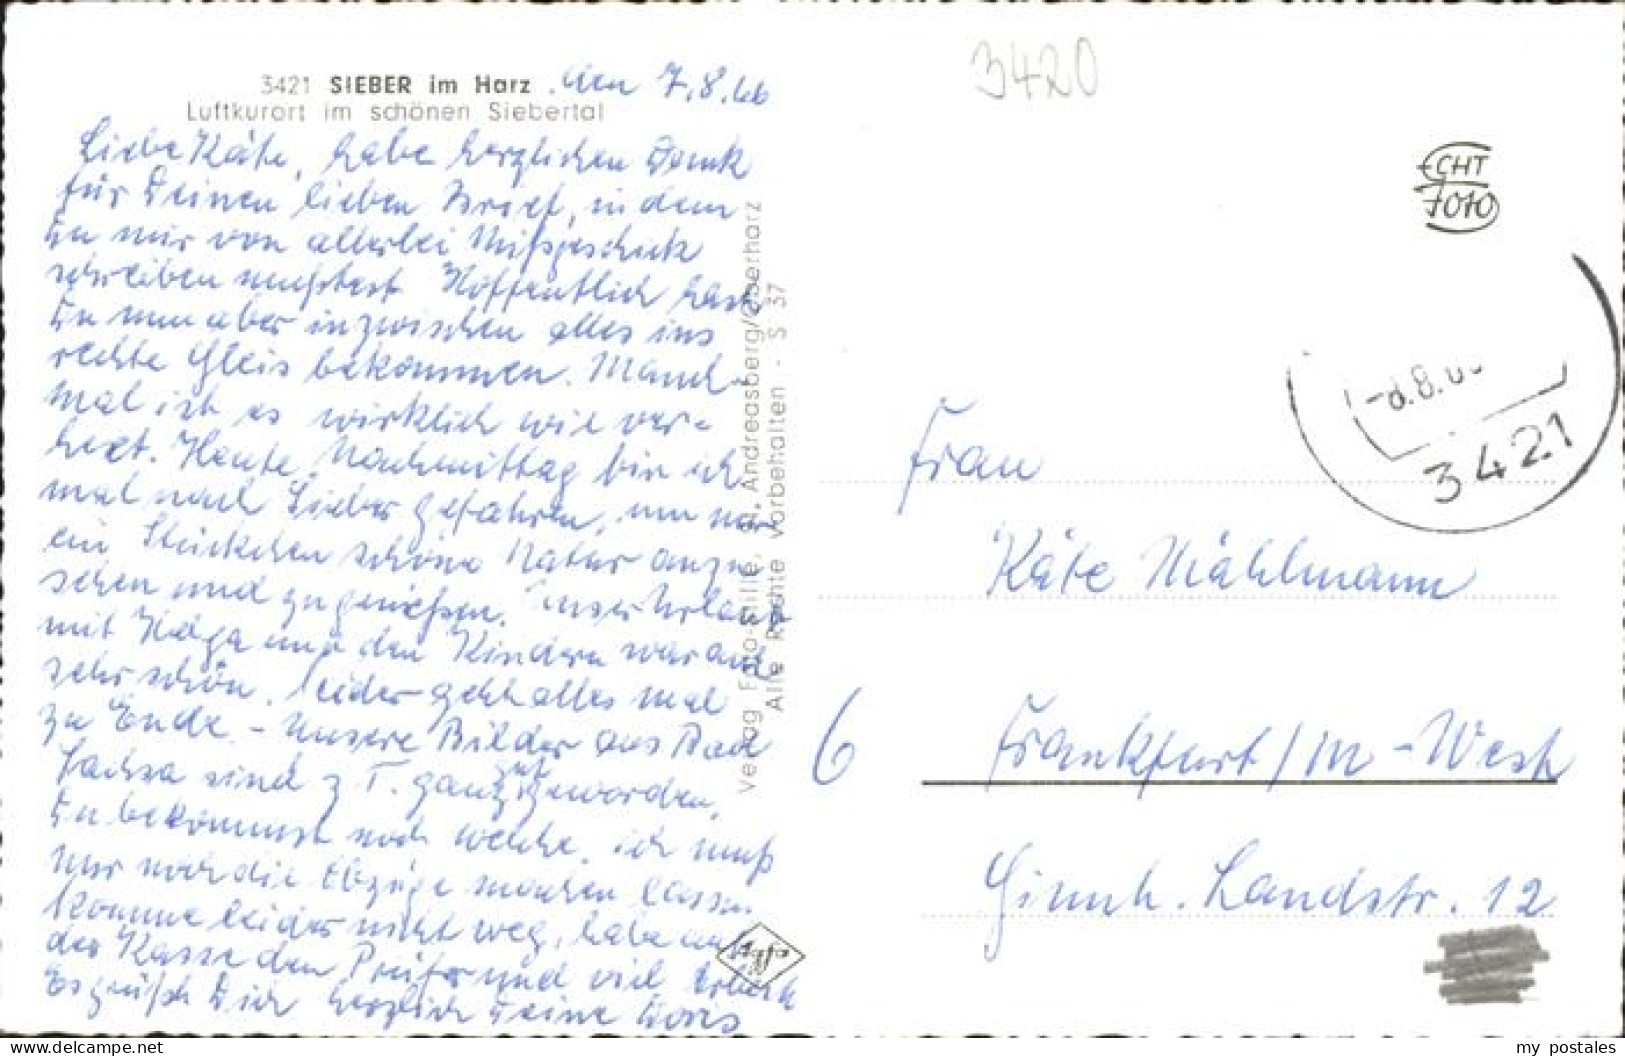 3421 SIEBER im Harz. den 7.8.66
Luftkurort im schönen Siebertal
Liebe Käte, habe herzlichen Dank
für Deinen lieben Brief, in dem
Du mir von allerlei Mißgeschick
schreiben mußtest. Hoffentlich hast
Du nun aber inzwischen alles ins
rechte Gleis bekommen. Manch-
mal ist es wirklich wie ver-
hext. Heute Nachmittag bin ich
mal nach Sieber gefahren, um
ein Stückchen schöne Natur anzu
sehen und zu genießen. Unser Urlaub
mit Helga und den Kindern war auch
sehr schön. Leider geht alles mal
zu Ende. - Unsere Bilder aus Bad
Sachsa sind z. T. ganz gut geworden,
Du bekommst noch welche. Ich muß
nur noch die Abzüge machen lassen
Komme leider nicht weg, habe
der Kasse den Prüfer und viel Arbeit
Es grüßt Dich herzlich Deine Doris
Verlag Foto-Hille, St. Andreasberg/Oberharz
Alle Rechte vorbehalten - S 37
Agfa
3420
ECHT
FOTO
-8.8.66
3421
Frau
Käte Mählmann
6 Frankfurt/M-West
Ginnh. Landstr. 12
my_postales